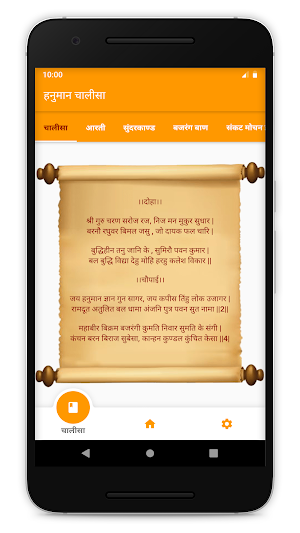 10:00
हनुमान चालीसा
चालीसा आरती सुंदरकाण्ड बजरंग बाण संकट मोचन
।।दोहा।।
श्री गुरु चरण सरोज रज, निज मन मुकुर सुधार |
बरनौ रघुवर बिमल जसु , जो दायक फल चारि |
बुद्धिहीन तनु जानि के , सुमिरौ पवन कुमार |
बल बुद्धि विद्या देहु मोहि हरहु कलेश विकार ||
।।चौपाई।।
जय हनुमान ज्ञान गुन सागर, जय कपीस तिंहु लोक उजागर |
रामदूत अतुलित बल धामा अंजनि पुत्र पवन सुत नामा ||2||
महाबीर बिक्रम बजरंगी कुमति निवार सुमति के संगी |
कंचन बरन बिराज सुबेसा, कान्हन कुण्डल कुंचित केसा ||4|
चालीसा